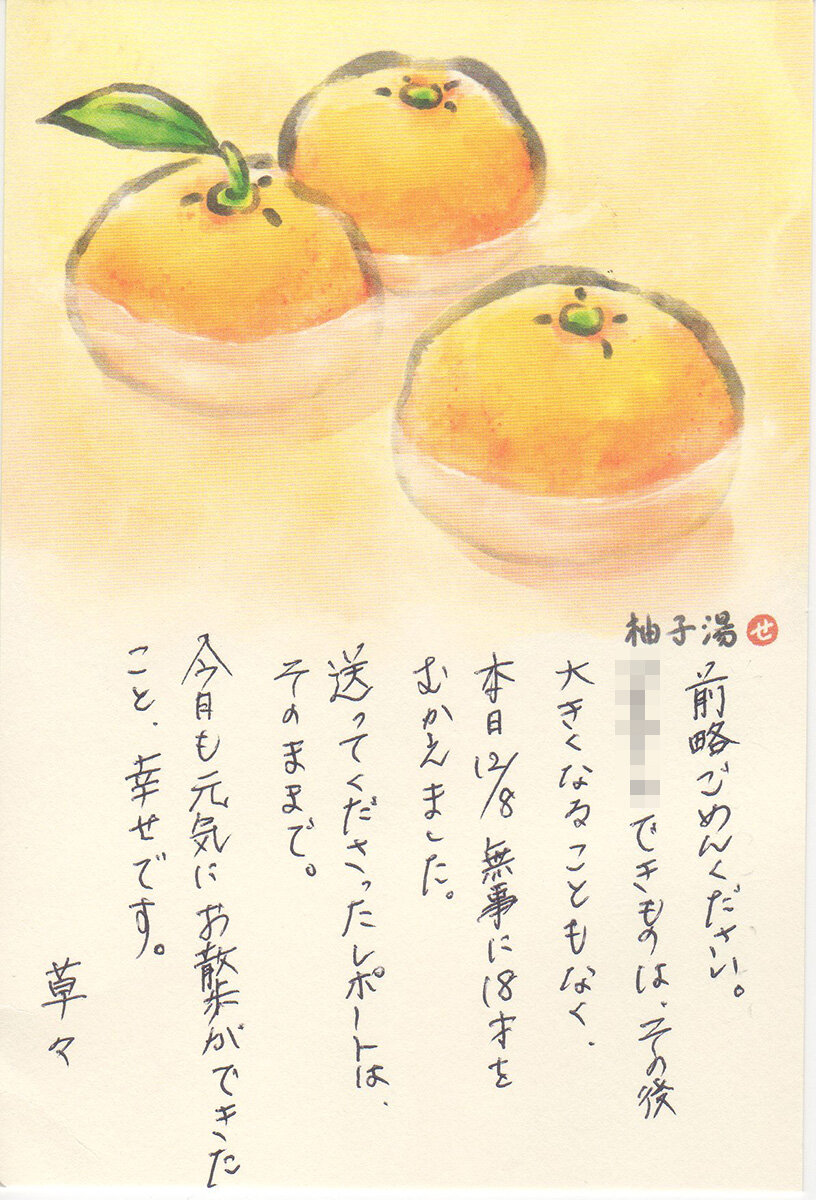 柚子湯 せ
前略ごめんください。
できものは、その後
大きくなることもなく、
本日12/8 無事に18才を
むかえました。
送ってくださったレポートは、
そのままで。
今日も元気にお散歩ができた
こと、幸せです。
草々